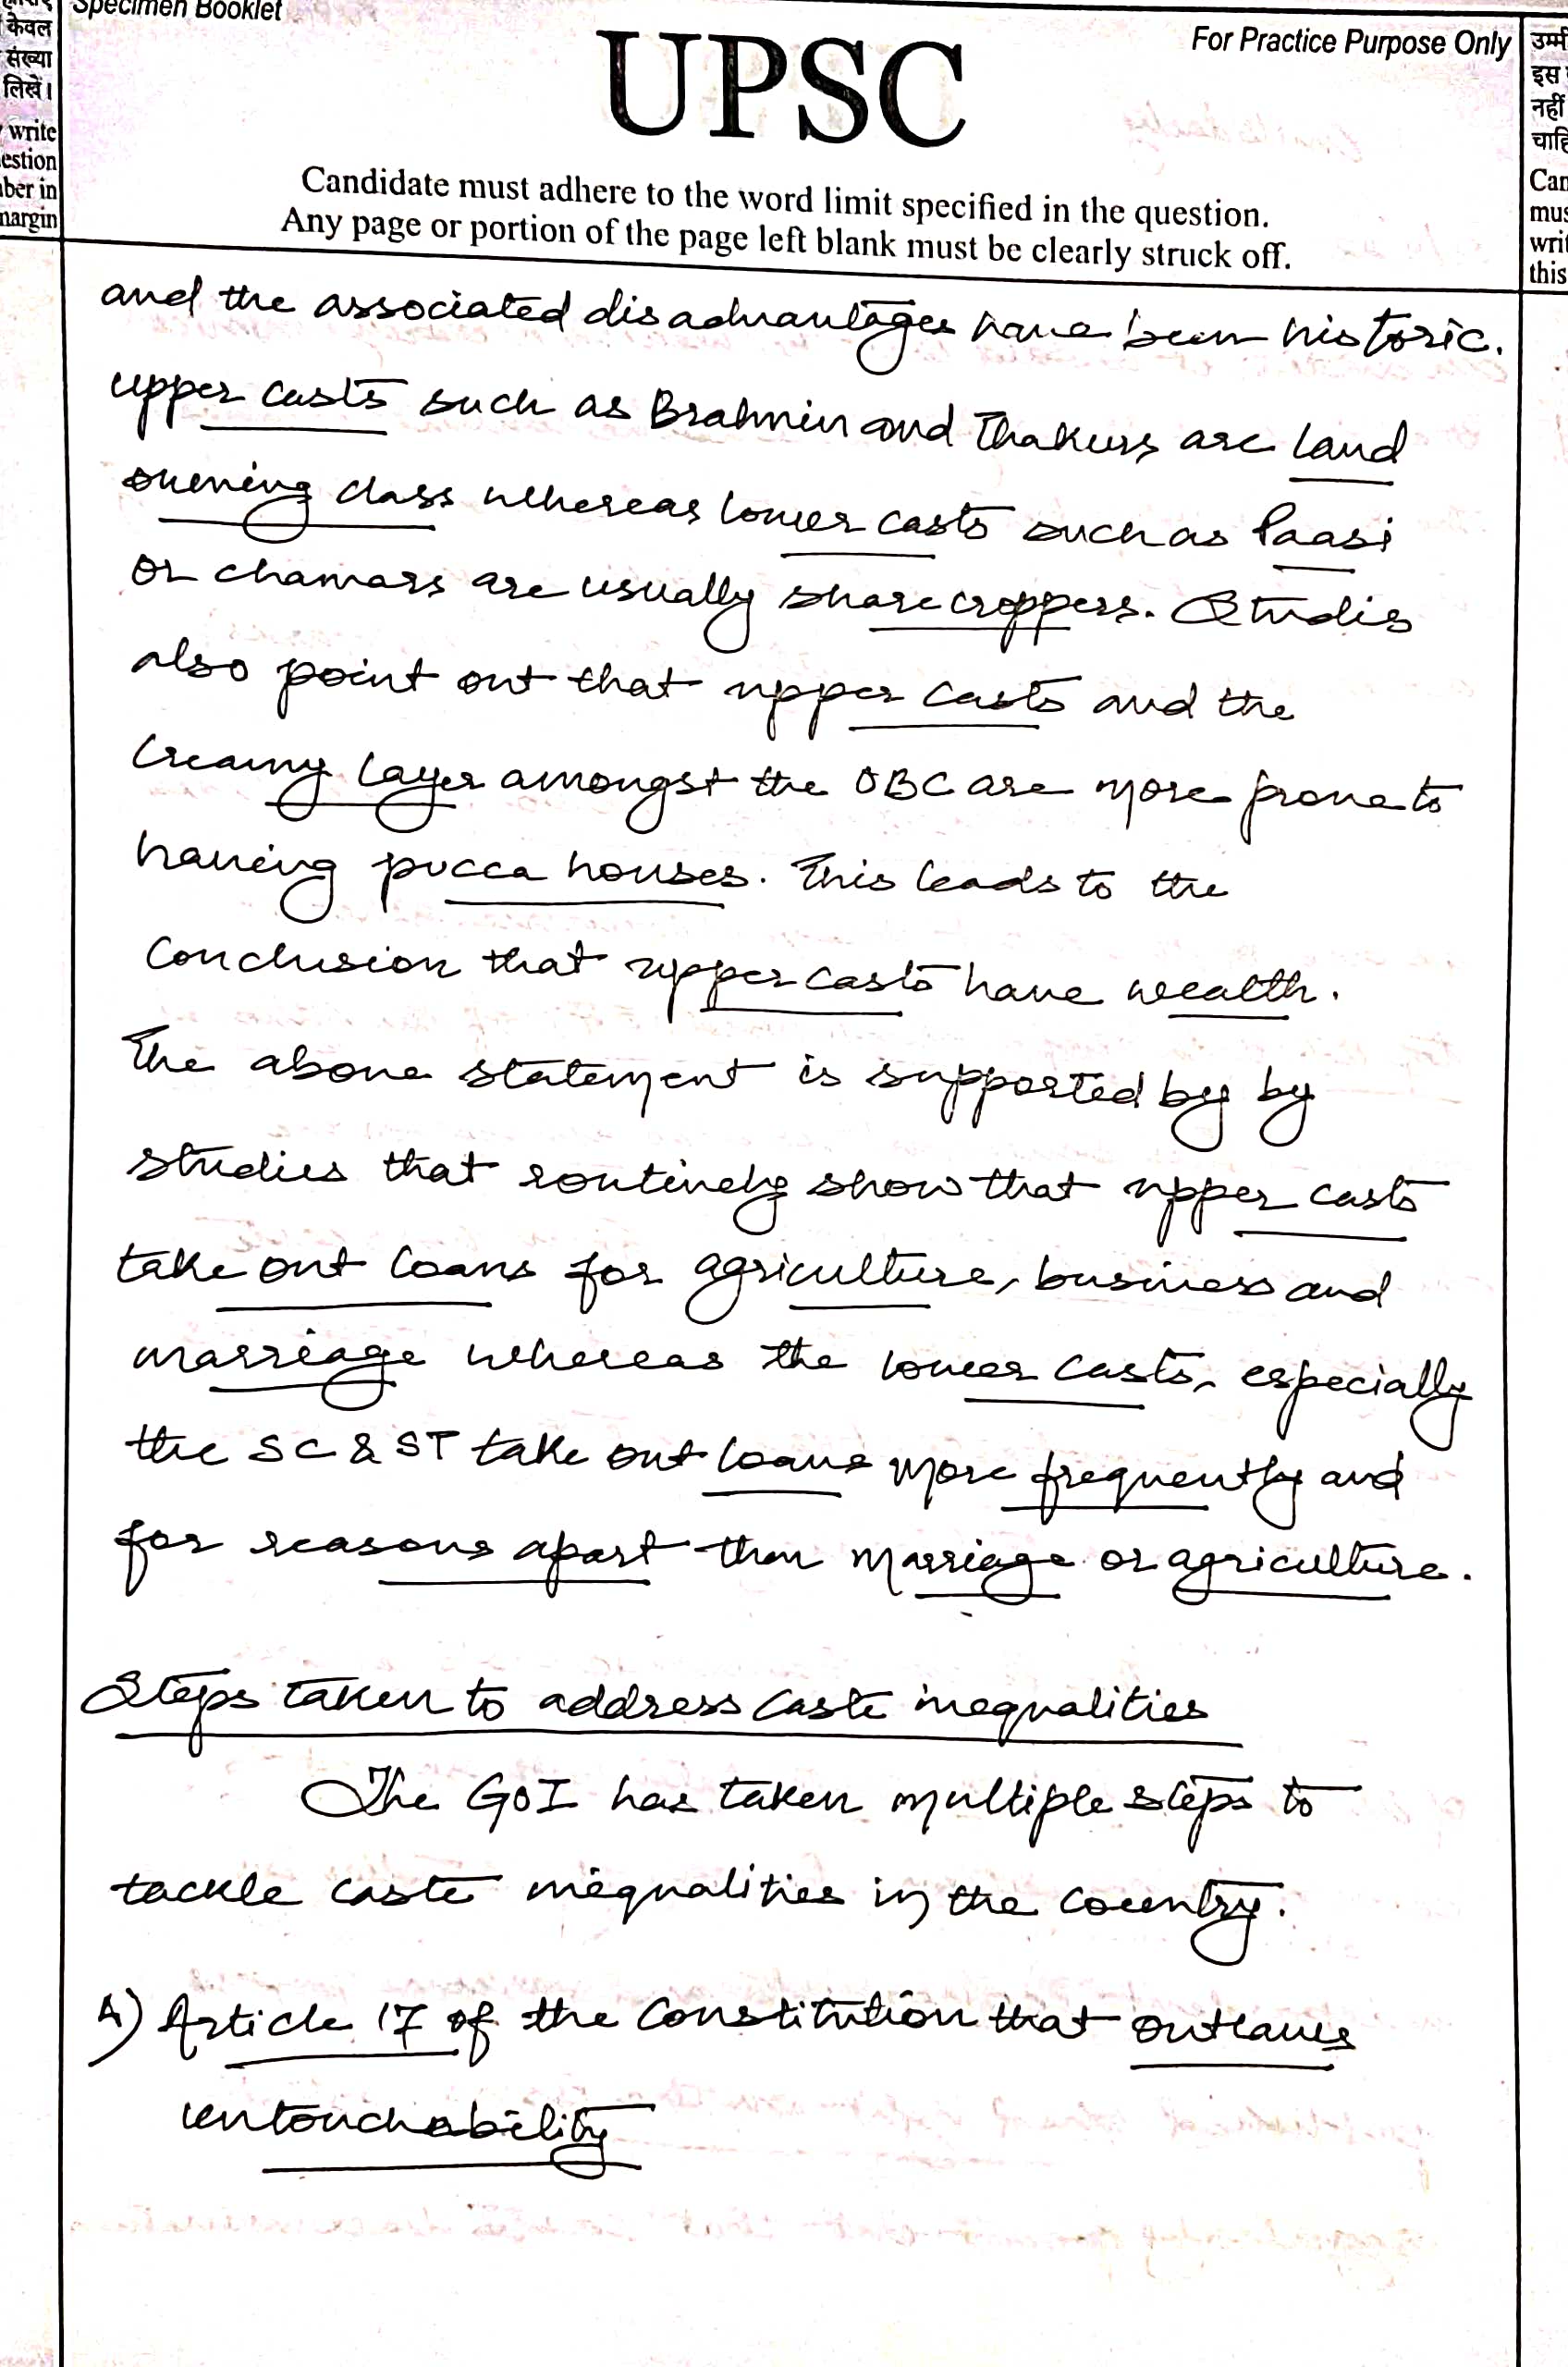 Specimen Booklet
For Practice Purpose Only
UPSC
Candidate must adhere to the word limit specified in the question.
Any page or portion of the page left blank must be clearly struck off.
केवल
संख्या
लिखें।
write
estion
ber in
margin
उम्मी
इस
नहीं
चाहि
Can
mus
writ
this
and the associated disadvantages have been historic.
upper casts such as Brahmin and Thakurs are land
owening class whereas lower casts such as Paasi
or chamars are usually sharecroppers. Studis
also point out that upper casts and the
creamy layer amongst the OBC are more prone to
having pucca houses. This leads to the
conclusion that upper casts have wealth.
The above statement is supported by by
studies that routinely show that upper casts
take out loans for agriculture, business and
marriage whereas the lower casts, especially
the SC & ST take out loans more frequently and
for reasons apart than marriage or agriculture.
Steps taken to address caste inequalities
The GoI has taken multiple steps to
tackle caste inequalities in the country.
A) Article 17 of the Constitution that outlaws
untouchability